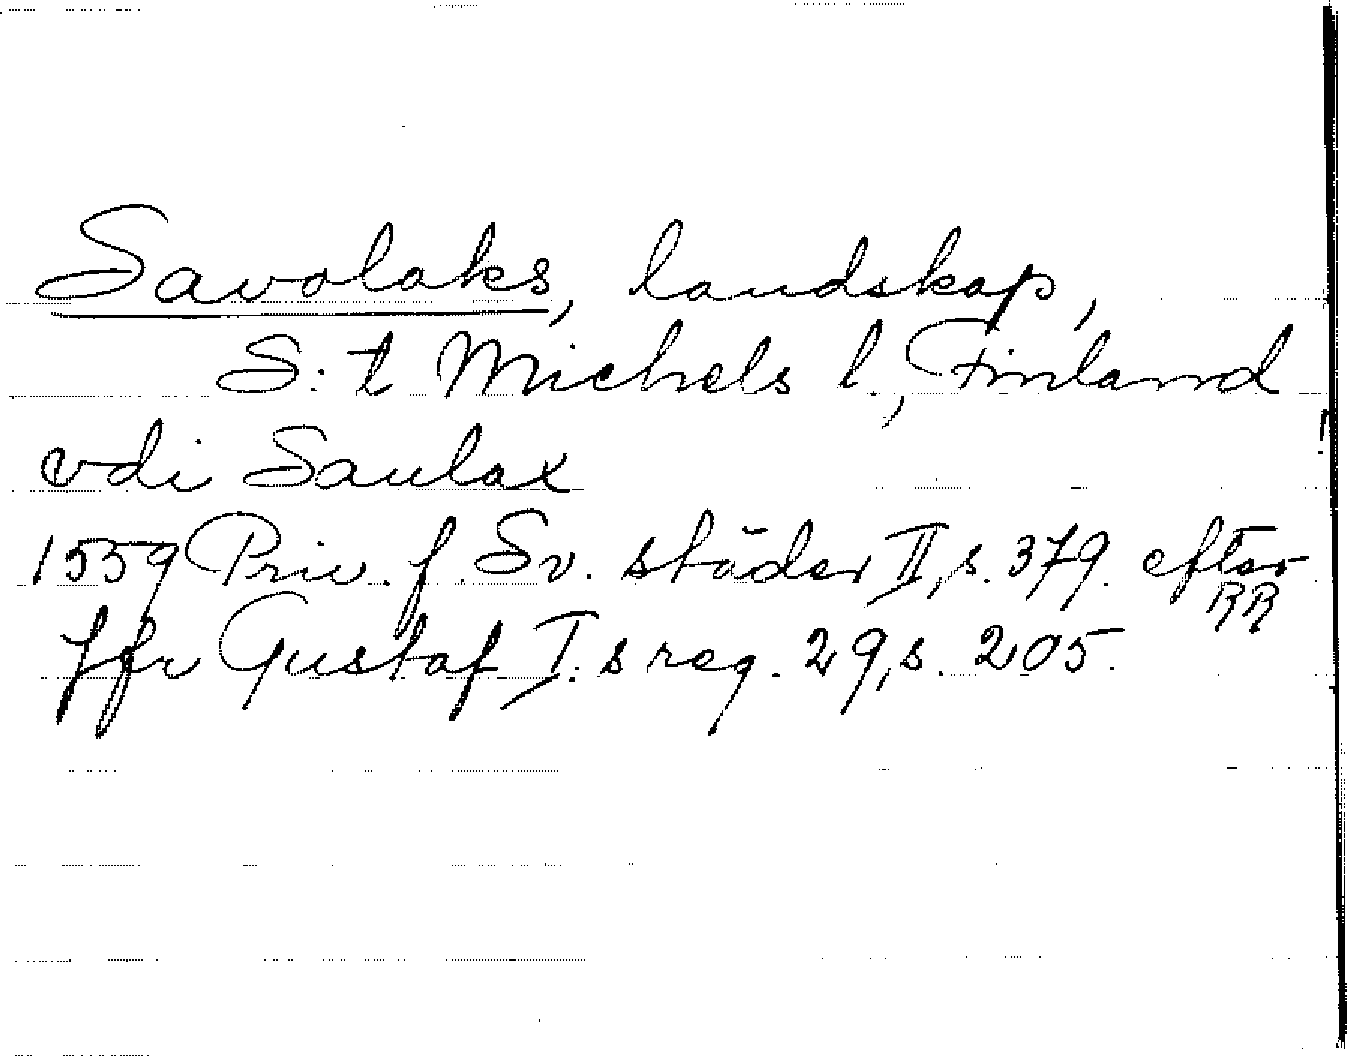 Savolaks, landskap,
S:t Michels l., Finland
vdi Saulax
1559 Priv. f. Sv. städer II, s. 379. efter RR
Jfr Gustaf I:s reg. 29, s. 205.